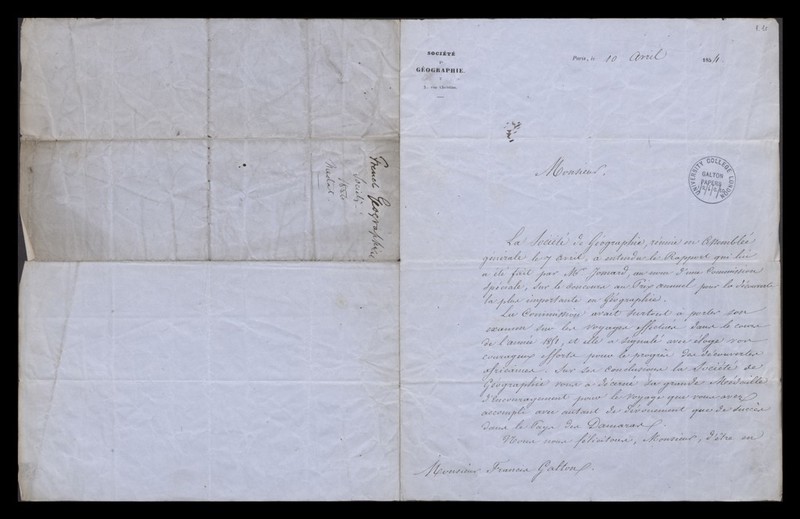 SOCIÉTÉ
DE
GÉOGRAPHIE.
Paris, le 10 Avril 1854.
Monsieur,
UNIVERSITY COLLEGE LONDON
GALTON
PAPERS
French Geographical
Society
Medal
La Société de Géographie, réunie en Assemblée
générale le 7 avril, a entendu le Rapport qui lui
a été fait par Mr Jomard, au nom d'une Commission
Spéciale, sur le Concours au Prix annuel pour la découverte
la plus importante en Géographie.
La Commission avait surtout à porter son
examen sur les voyages effectués dans le cours
de l'année 1851, et elle a signalé avec éloge vos
courageux efforts pour le progrès des découvertes
africaines. Sur ses conclusions la Société de
Géographie vous a décerné sa grande Médaille
d'encouragement pour le voyage que vous avez
accompli avec autant de dévouement que de succès
dans le Pays des Damaras.
Nous nous félicitons, Monsieur, d'être en
Monsieur Francis Galton.